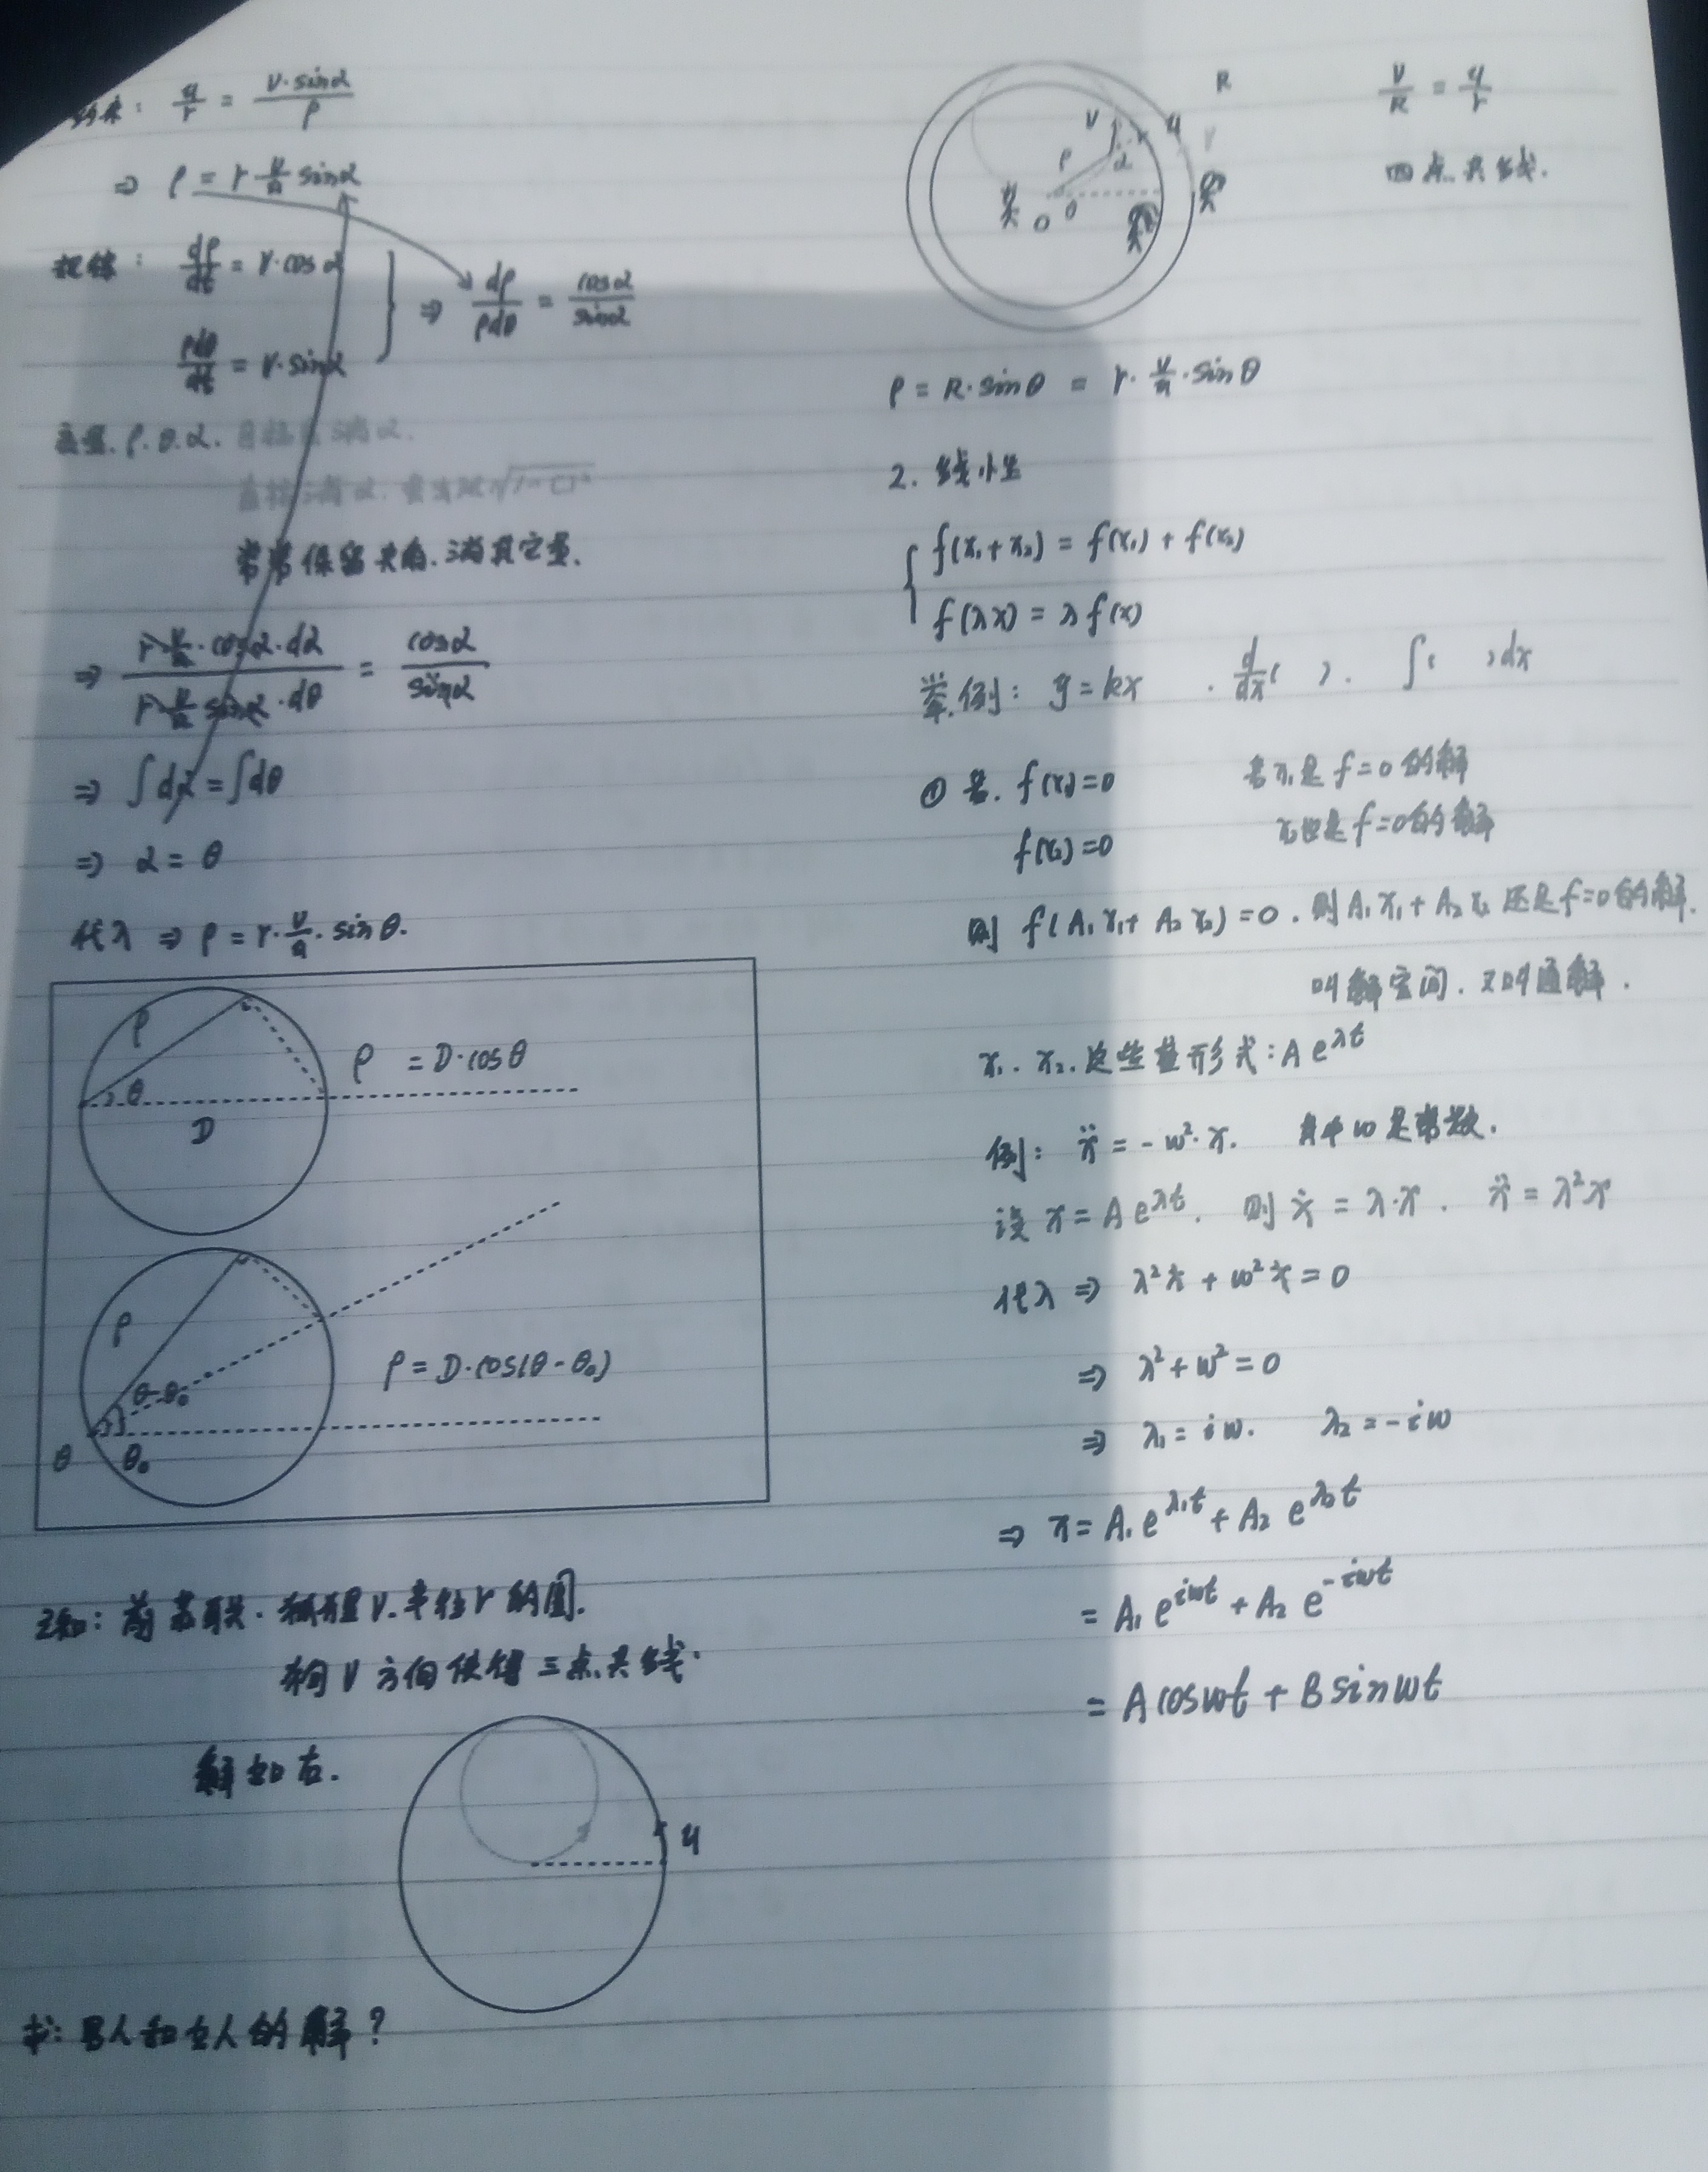 约束: u/r = v·sinα/ρ
⇒ ρ = r v/u sinα
dρ/dt = v·cosα
ρdθ/dt = v·sinα
⇒ dρ/ρdθ = cosα/sinα
变量. ρ.θ.α. 目标 消α.
直接消α. 会出现√1-□²
常常保留夹角.消其它量.
⇒ r v/u·cosα·dα / r v/u sinα·dθ = cosα/sinα
⇒ ∫dα = ∫dθ
⇒ α = θ
代入 ⇒ ρ = r·v/u·sinθ.
ρ
θ
D
ρ = D·cosθ
ρ
θ-θ₀
θ
θ₀
ρ = D·cos(θ-θ₀)
已知: 前苏联. 狐狸v.半径r的圆.
狗v方向使得三点共线.
解如右.
u
求: 男人和女人的解?
R
v
u
r
ρ
α
O
θ
v/R = u/r
四点共线.
ρ = R·sinθ = r·v/u·sinθ
2. 线性
f(x₁+x₂) = f(x₁) + f(x₂)
f(λx) = λf(x)
举例: y = kx . d/dx( ). ∫( )dx
① 若. f(x₁)=0 若x₁是f=0的解
f(x₂)=0 x₂也是f=0的解
则 f(A₁x₁+A₂x₂)=0. 则A₁x₁+A₂x₂还是f=0的解.
叫解空间. 又叫通解.
x₁. x₂.这些量形式: Ae^λt
例: ẍ = -w²·x. 其中w是常数.
设 x = Ae^λt. 则 ẋ = λ·x. ẍ = λ²x
代入 ⇒ λ²x + w²x = 0
⇒ λ²+w²=0
⇒ λ₁ = iw. λ₂ = -iw
⇒ x = A₁e^λ₁t + A₂e^λ₂t
= A₁e^iwt + A₂e^-iwt
= Acoswt + Bsinwt